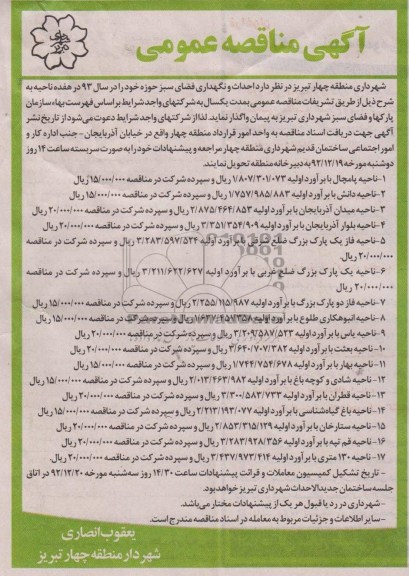 آگهی مناقصه عمومی
شهرداری منطقه چهار تبریز در نظر دارد احداث و نگهداری فضای سبز حوزه خود را در سال ۹۳ در هفده ناحیه به
شرح ذیل از طریق تشریفات مناقصه عمومی بمدت یکسال به شرکتهای واجد شرایط بر اساس فهرست بهاء سازمان
پارکها و فضای سبز شهرداری تبریز به پیمان واگذار نماید. لذا از شرکتهای واجد شرایط دعوت می‌شود از تاریخ نشر
آگهی جهت دریافت اسناد مناقصه به واحد امور قرارداد منطقه چهار واقع در خیابان آذربایجان - جنب اداره کار و
امور اجتماعی ساختمان قدیم شهرداری منطقه چهار مراجعه و پیشنهادات خود را به صورت سربسته ساعت ۱۴ روز
دوشنبه مورخه ۹۲/۱۲/۱۹ به دبیرخانه منطقه تحویل نمایند.
۱-ناحیه پامچال با برآورد اولیه ۱/۸۰۷/۳۰۱/۰۷۳ ریال و سپرده شرکت در مناقصه ۱۵/۰۰۰/۰۰۰ ریال
۲-ناحیه دانش با برآورد اولیه ۱/۷۵۷/۹۸۵/۸۸۳ ریال و سپرده شرکت در مناقصه ۱۵/۰۰۰/۰۰۰ ریال
۳-ناحیه میدان آذربایجان با برآورد اولیه ۲/۸۷۵/۴۶۴/۸۵۳ ریال و سپرده شرکت در مناقصه ۲۰/۰۰۰/۰۰۰ ریال
۴-ناحیه بلوار آذربایجان با برآورد اولیه ۳/۳۵۱/۳۵۴/۹۰۹ ریال و سپرده شرکت در مناقصه ۲۰/۰۰۰/۰۰۰ ریال
۵-ناحیه فاز یک پارک بزرگ ضلع شرقی با برآورد اولیه ۳/۲۸۳/۵۹۷/۵۲۴ ریال و سپرده شرکت در مناقصه
۲۰/۰۰۰/۰۰۰ ریال.
۶-ناحیه یک پارک بزرگ ضلع غربی با برآورد اولیه ۳/۲۱۱/۶۲۲/۶۲۷ ریال و سپرده شرکت در مناقصه
۲۰/۰۰۰/۰۰۰ ریال
۷-ناحیه فاز دو پارک بزرگ با برآورد اولیه ۲/۲۵۵/۱۱۵/۹۸۷ ریال و سپرده شرکت در مناقصه ۱۵/۰۰۰/۰۰۰ ریال
۸-ناحیه انبوهکاری طلوع با برآورد اولیه ریال و سپرده شرکت در مناقصه ۱۵/۰۰۰/۰۰۰ ریال
۹-ناحیه یاس با برآورد اولیه ۳/۲۰۹/۵۸۷/۵۲۳ ریال و سپرده شرکت در مناقصه ۲۰/۰۰۰/۰۰۰ ریال
۱۰-ناحیه بعثت با برآورد اولیه ۳/۶۴۰/۷۰۷/۳۸۲ ریال و سپرده شرکت در مناقصه ۲۰/۰۰۰/۰۰۰ ریال
۱۱-ناحیه بهار با برآورد اولیه ۱/۷۴۴/۷۵۴/۶۷۸ ریال و سپرده شرکت در مناقصه ۱۵/۰۰۰/۰۰۰ ریال
۱۲-ناحیه شادی و کوچه باغ با برآورد اولیه ۲/۰۱۳/۴۶۳/۹۸۲ ریال و سپرده شرکت در مناقصه ۱۵/۰۰۰/۰۰۰ ریال
۱۳-ناحیه قطران با برآورد اولیه ۳/۳۰۰/۵۸۳/۷۳۳ ریال و سپرده شرکت در مناقصه ۲۰/۰۰۰/۰۰۰ ریال
۱۴-ناحیه باغ گیاه‌شناسی با برآورد اولیه ۲/۲۱۳/۱۹۳/۰۷۷ ریال و سپرده شرکت در مناقصه ۱۵/۰۰۰/۰۰۰ ریال
۱۵-ناحیه ستارخان با برآورد اولیه ۲/۸۵۳/۳۱۵/۱۳۹ ریال و سپرده شرکت در مناقصه ۲۰/۰۰۰/۰۰۰ ریال
۱۶-ناحیه قم تپه با برآورد اولیه ۳/۲۸۳/۹۲۸/۳۵۶ ریال و سپرده شرکت در مناقصه ۲۰/۰۰۰/۰۰۰ ریال
۱۷-ناحیه ۱۳۰ متری با برآورد اولیه ۳/۴۳۷/۹۷۳/۴۱۴ ریال و سپرده شرکت در مناقصه ۲۰/۰۰۰/۰۰۰ ریال
- تاریخ تشکیل کمیسیون معاملات و قرائت پیشنهادات ساعت ۱۴/۳۰ روز سه‌شنبه مورخه ۹۲/۱۲/۲۰ در اتاق
جلسه ساختمان جدیدالاحداث شهرداری تبریز خواهد بود.
-شهرداری در رد یا قبول هر یک از پیشنهادات مختار می‌باشد.
-سایر اطلاعات و جزئیات مربوط به معامله در اسناد مناقصه مندرج است.
یعقوب انصاری
شهردار منطقه چهار تبریز